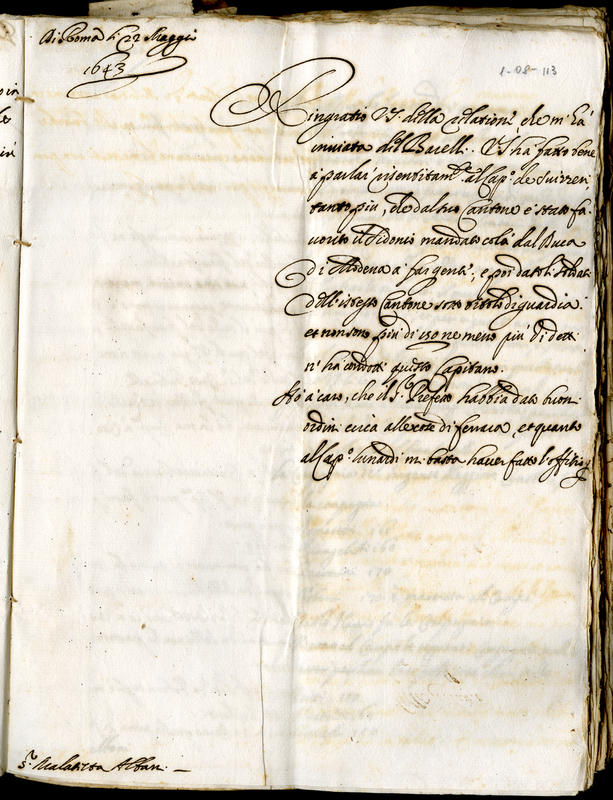 Di Roma li 22 Maggio
1643
1-08-113
Ringratio V.S. della relatione che m'hà
inviata del Barelli. V.S. ha fatto bene
a parlar risentitam.te al Cap.o de Suizzeri
tanto più, che dal suo Cantone è stato fa-
uorito il Sidonio mandato colà dal Duca
di Modena a far gente, e poi datoli soldati
dell'istesso Cantone sotto titolo di guardia
et non sono più di 150 ne meno più di dett
n'ha condott questo Capitano.
Hò a caro, che il S.r Prefetto habbia dato buon
ordini circa alle cose di Ferrara, et quanto
al Cap.o Lunardi mi basta haver fatto l'offitio
S.r Malatesta Albani. —